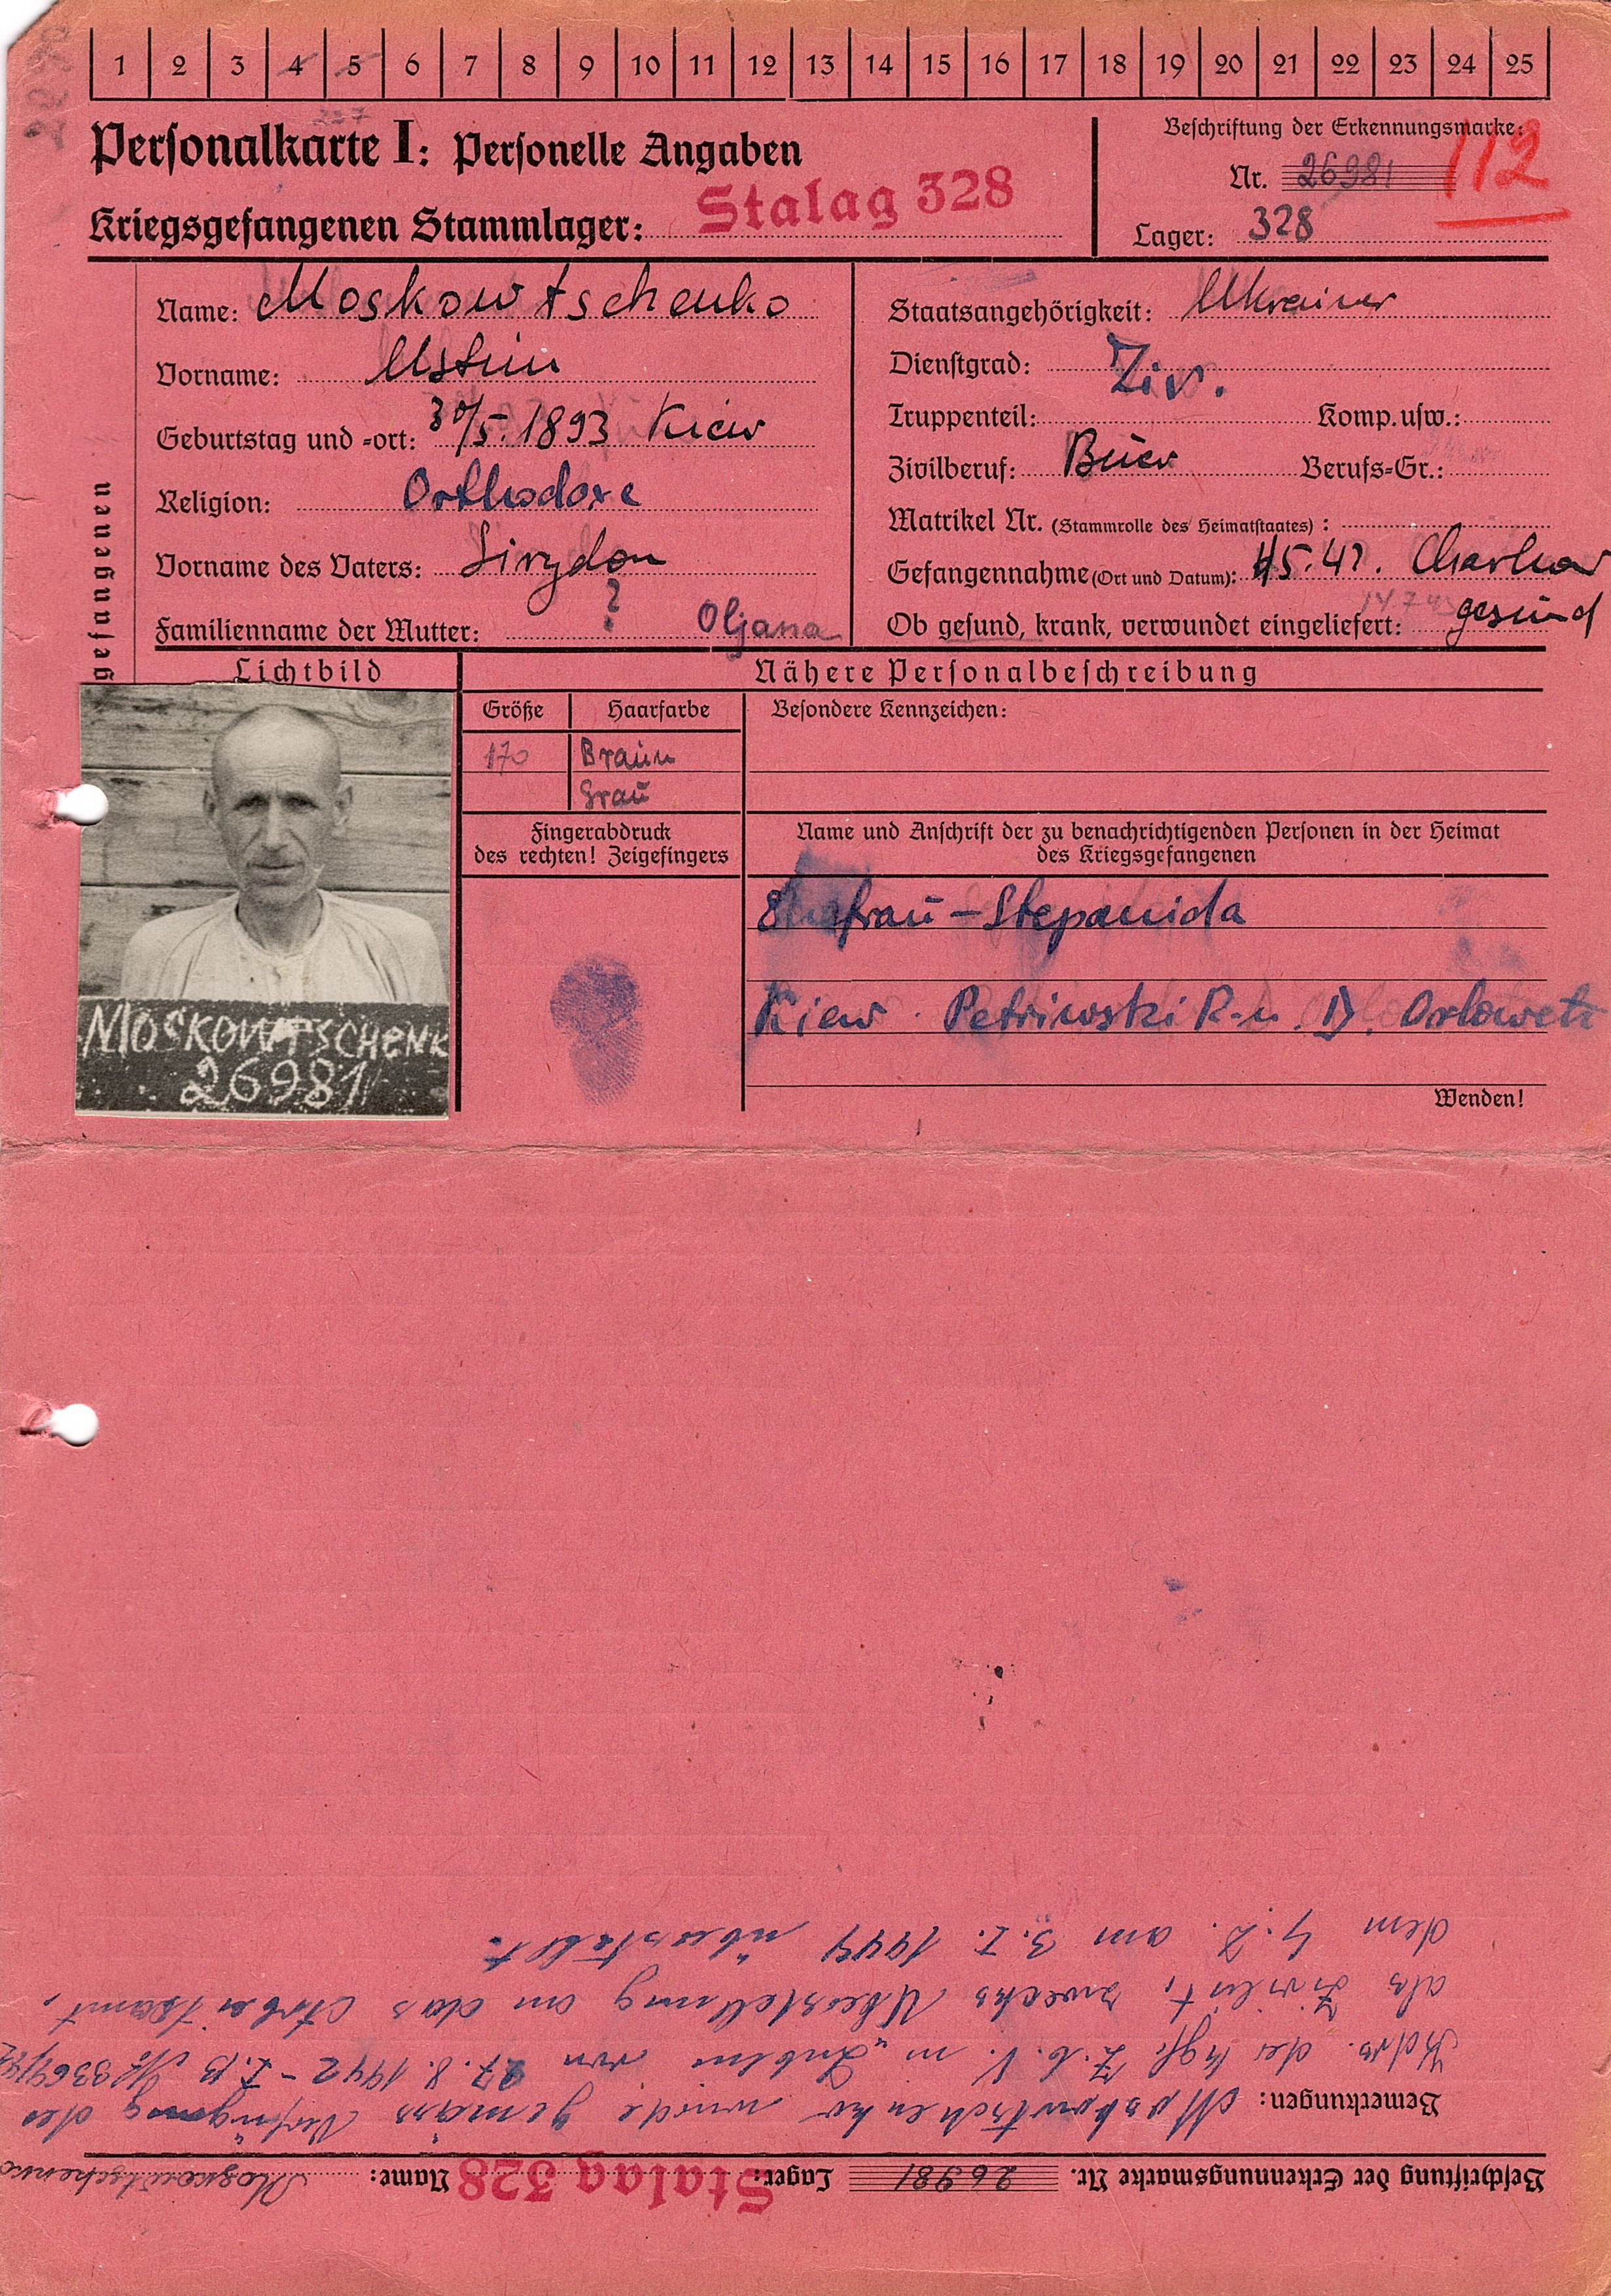 1 2 3 4 5 6 7 8 9 10 11 12 13 14 15 16 17 18 19 20 21 22 23 24 25
Personalkarte I: Personelle Angaben
Kriegsgefangenen Stammlager: Stalag 328
Beschriftung der Erkennungsmarke:
Nr. 26981 112
Lager: 328
Name: Moskowtschenko
Vorname: Ustin
Geburtstag und =ort: 30/5. 1893 Kiew
Religion: Orthodoxe
Vorname des Vaters:
Familienname der Mutter: ? Oljana
Staatsangehörigkeit: Ukrainer
Dienstgrad: Ziv.
Truppenteil: Komp. usw.:
Zivilberuf: Berufs=Gr.:
Matrikel Nr. (Stammrolle des Heimatstaates) :
Gefangennahme (Ort und Datum): Charkow
Ob gesund, krank, verwundet eingeliefert: gesund
Lichtbild
Nähere Personalbeschreibung
Größe Haarfarbe Besondere Kennzeichen:
170 Braun
Grau
Fingerabdruck
des rechten! Zeigefingers
Name und Anschrift der zu benachrichtigenden Personen in der Heimat
des Kriegsgefangenen
Ehefrau - Stepanida
Kiew . Petriwski R-n. D. Orlowetz
Wenden!
MOSKOWTSCHENK
26981
Beschriftung der Erkennungsmarke Nr. 26981 Lager: Stalag 328 Name: Moskowtschenko
Bemerkungen: Moskowtschenko wurde gemäss Verfügung des
Kdrs. der Kgf. z.b.V. in "Lublin" von 27.8.1942 - I.B № 3364/42
als Zivilist, zwecks Überstellung an das Arbeitsamt,
dem am 3. I. 1944 überstellt.